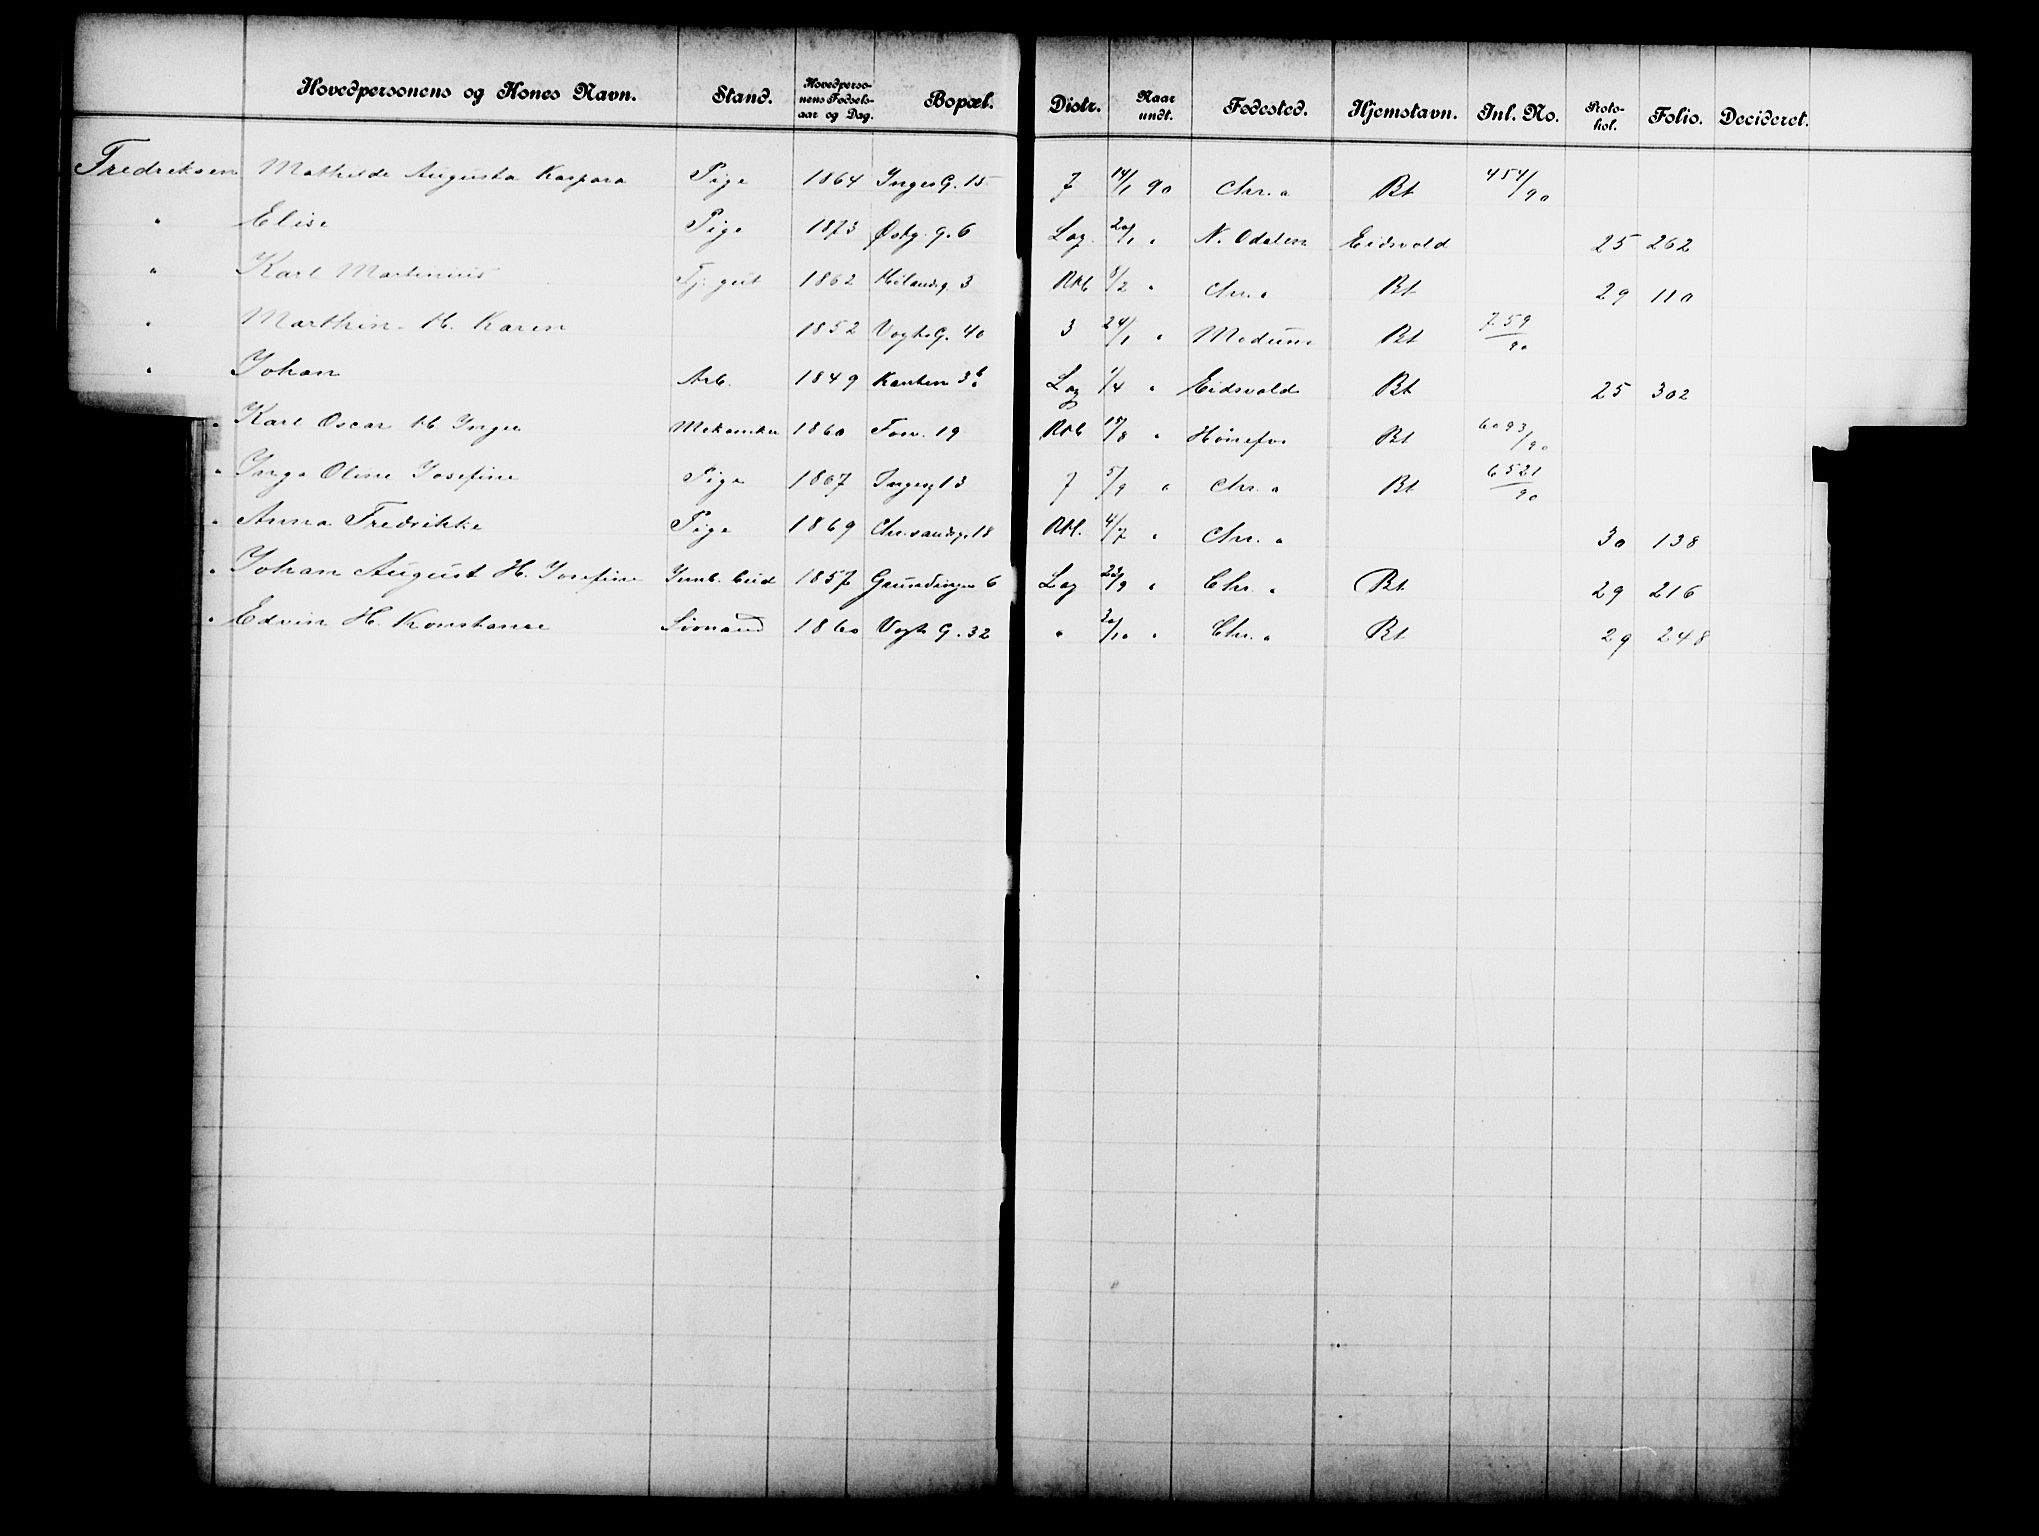 Hovedpersonens og Kones Navn. Stand. Hovedpersonens Fødselsaar og Dag. Bopæl. Distr. Naar undt. Fødested. Hjemstavn. Jnl. No. Protokol. Folio. Decideret.
Fredriksen Mathilde Augusta Kaspara Pige 1864 Inges G. 15 7 14/1 90 Chr.a Bt 454/90
" Elise Pige 1873 Østg. g. 6 Lag. 20/1 " N. Odalen Eidsvold 25 262
" Karl Martinius Tj. gut 1862 3 RM 8/2 " Chr.a Bt 29 110
" Marthin H. Karen 1852 Vogts G. 40 3 24/1 " Modum Bt 759/90
" Johan Arb. 1849 3b Lag 1/4 " Eidsvold Bt 25 302
" Karl Oscar H Inga Mekaniker 1860 Fosv. 19 RM 19/8 " Hønefos Bt 6093/90
" Inga Oline Josefine Pige 1867 Ingesg 13 7 5/9 " Chr.a Bt 6521/90
" Anna Fredrikke Pige 1869 Chr.sandsg. 18 RM. 4/7 " Chr.a 30 138
" Johan August H. Josefine Jernb. bud 1857 Grundingen 6 Lag 23/9 " Chr.a Bt 29 216
" Edvin H. Konstanse Sømand 1860 Vogts G. 32 " 30/10 " Chr.a Bt 29 248